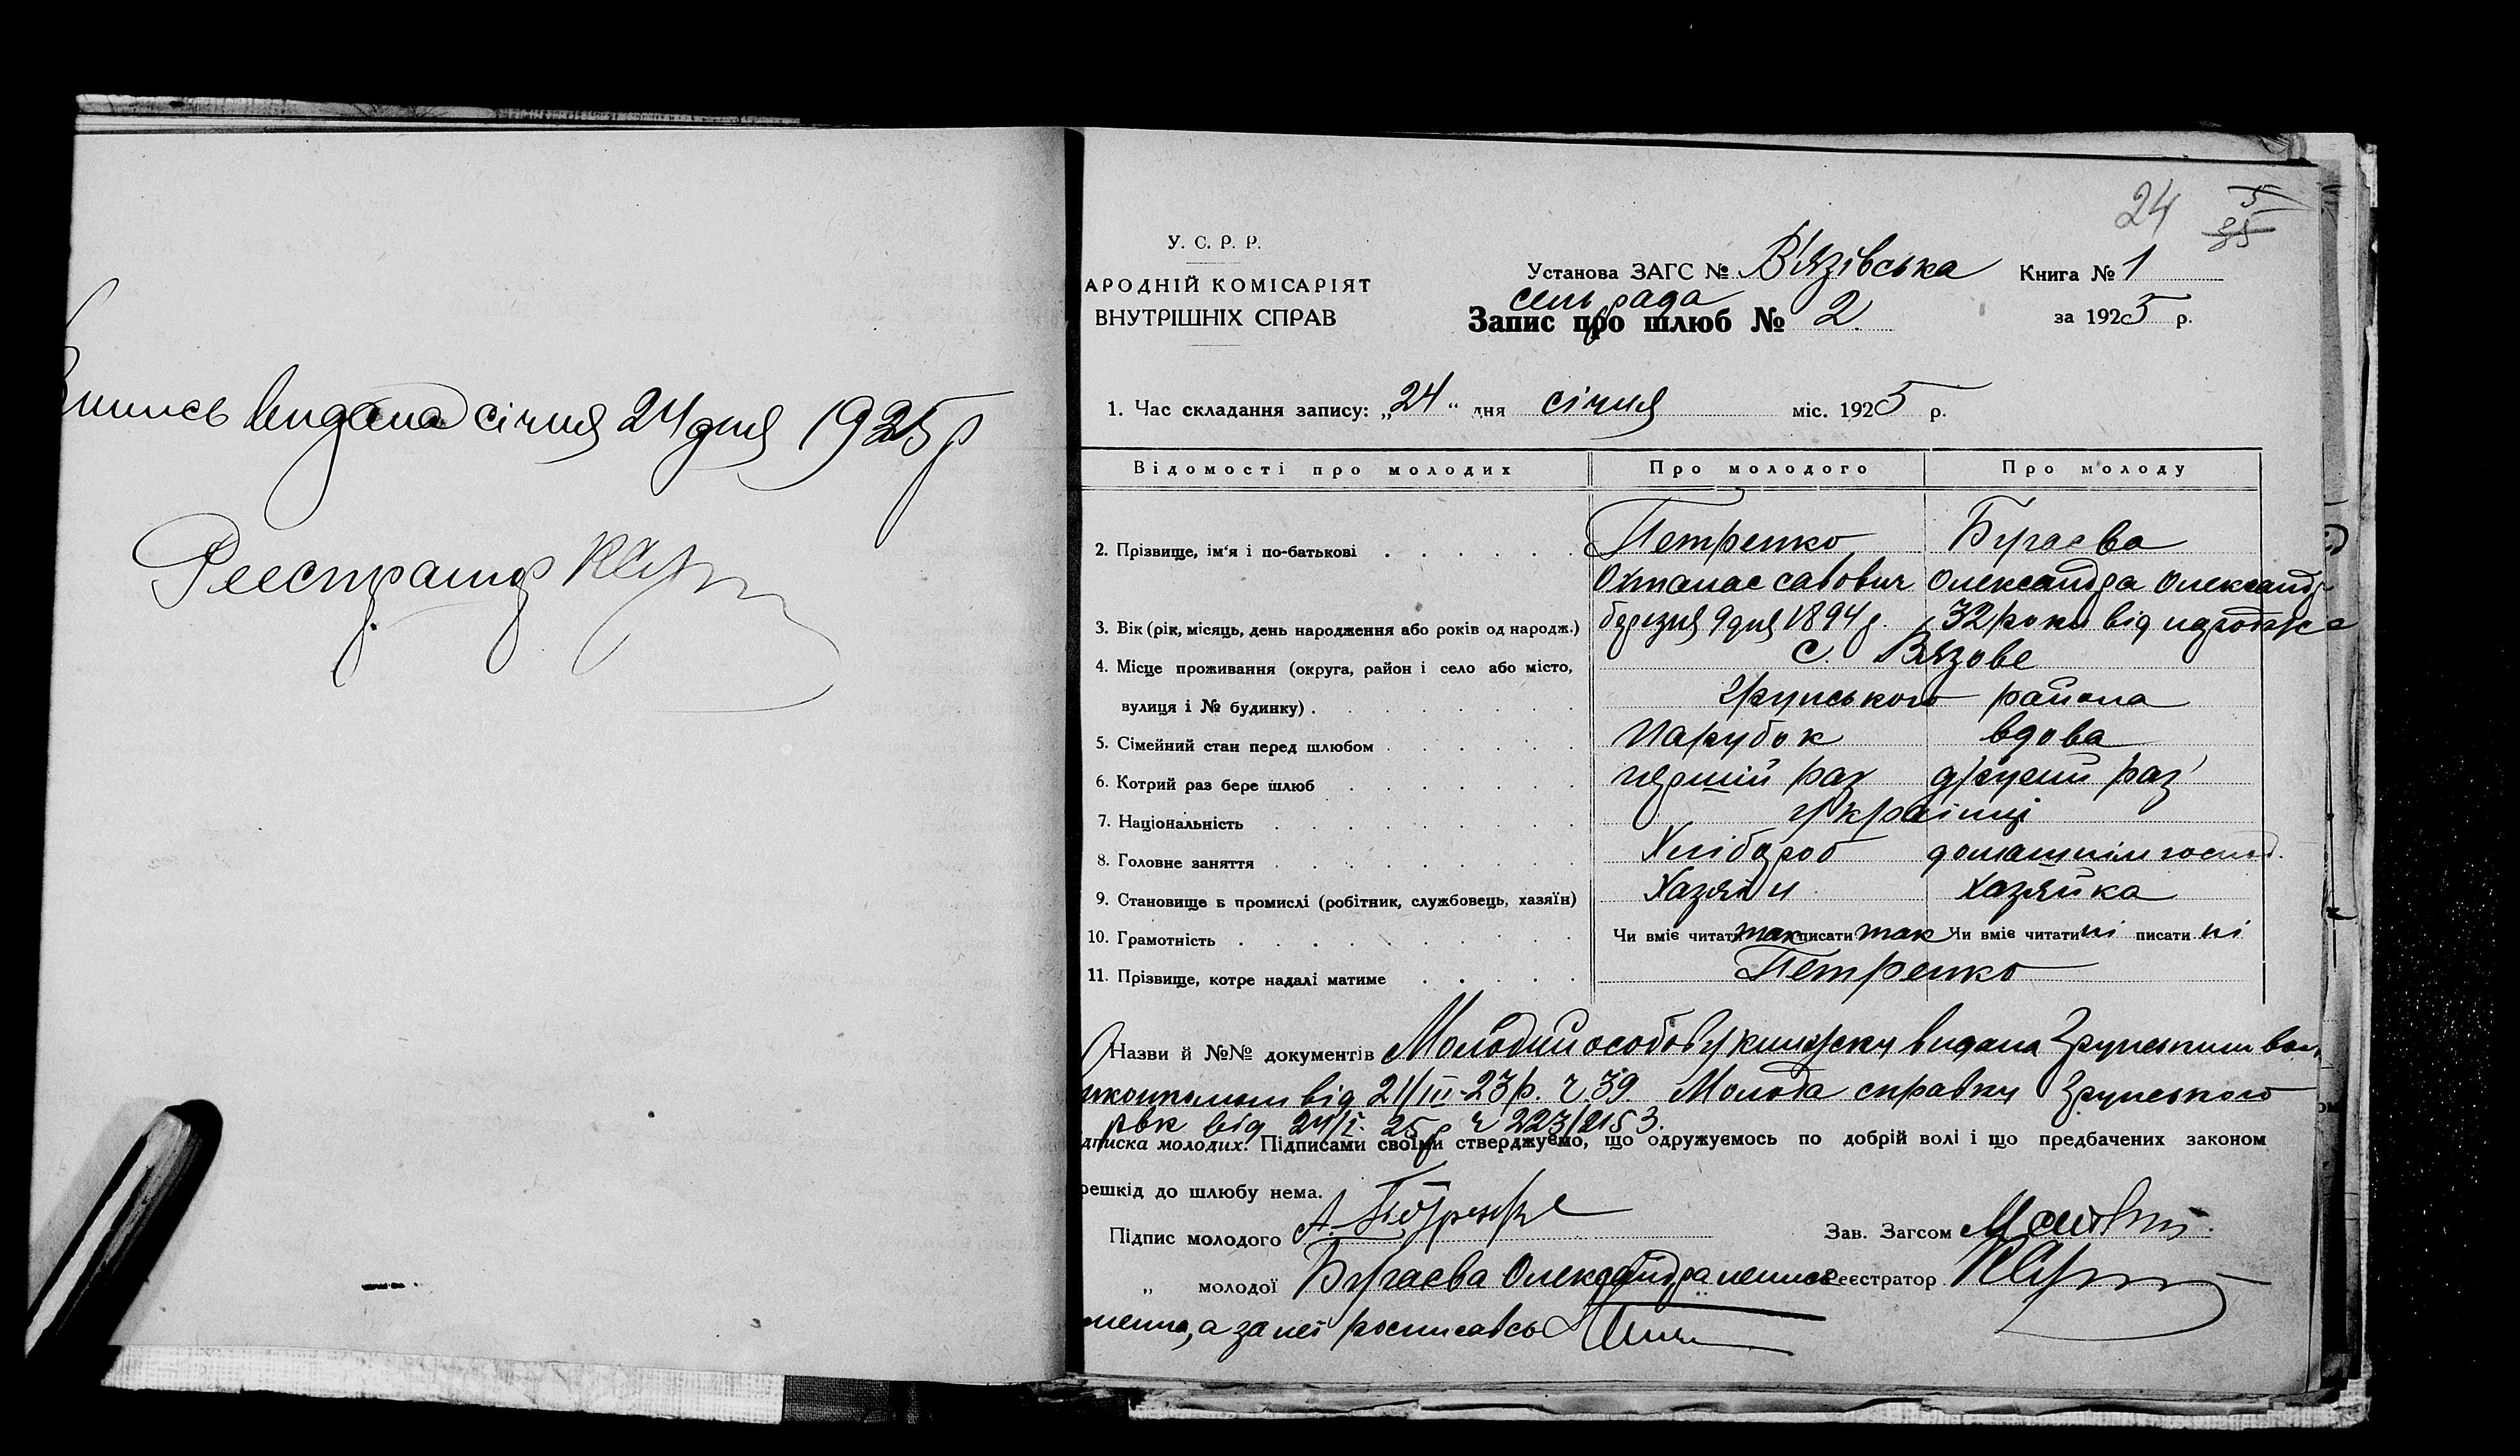 Випись видана січня 24 дня 1925 р
Реєстратор
24 5
35
У. С. Р. Р.
АРОДНІЙ КОМІСАРІЯТ
ВНУТРІШНІХ СПРАВ
Установа ЗАГС № В'язівська Книга № 1
сельрада
Запис про шлюб № 2. за 1925 р.
1. Час складання запису: „24“ дня січня міс. 1925 р.
Відомості про молодих Про молодого Про молоду
2. Прізвище, ім'я і по-батькові Петренко Бугаєва
Опанас савович Олександра Олександр
3. Вік (рік, місяць, день народження або років од народж.) березня 9 дня 1894 р. 32 роки від
4. Місце проживання (округа, район і село або місто, с. Вязове
вулиця і № будинку) грунського района
5. Сімейний стан перед шлюбом парубок вдова
6. Котрий раз бере шлюб перший раз другий раз
7. Національність українці
8. Головне заняття Хлібороб домашнім господ.
9. Становище в промислі (робітник, службовець, хазяїн) Хазяїн хазяйка
10. Грамотність Чи вміє читати так писати так Чи вміє читати ні писати ні
11. Прізвище, котре надалі матиме Петренко
Назви й №№ документів Молодий особову книжку видана Грунським вол
виконкомом від 21/III-23 р. ч. 39. Молода справку Грунського
рвк від 24/I 25 р ч 223/2153.
дписка молодих. Підписами своїми стверджуємо, що одружуємось по добрій волі і що предбачених законом
решкід до шлюбу нема.
Підпис молодого А. Петренко Зав. Загсом
„ молодої Бугаєва Олександра неписьРеєстратор
менна, а за неї росписавсь